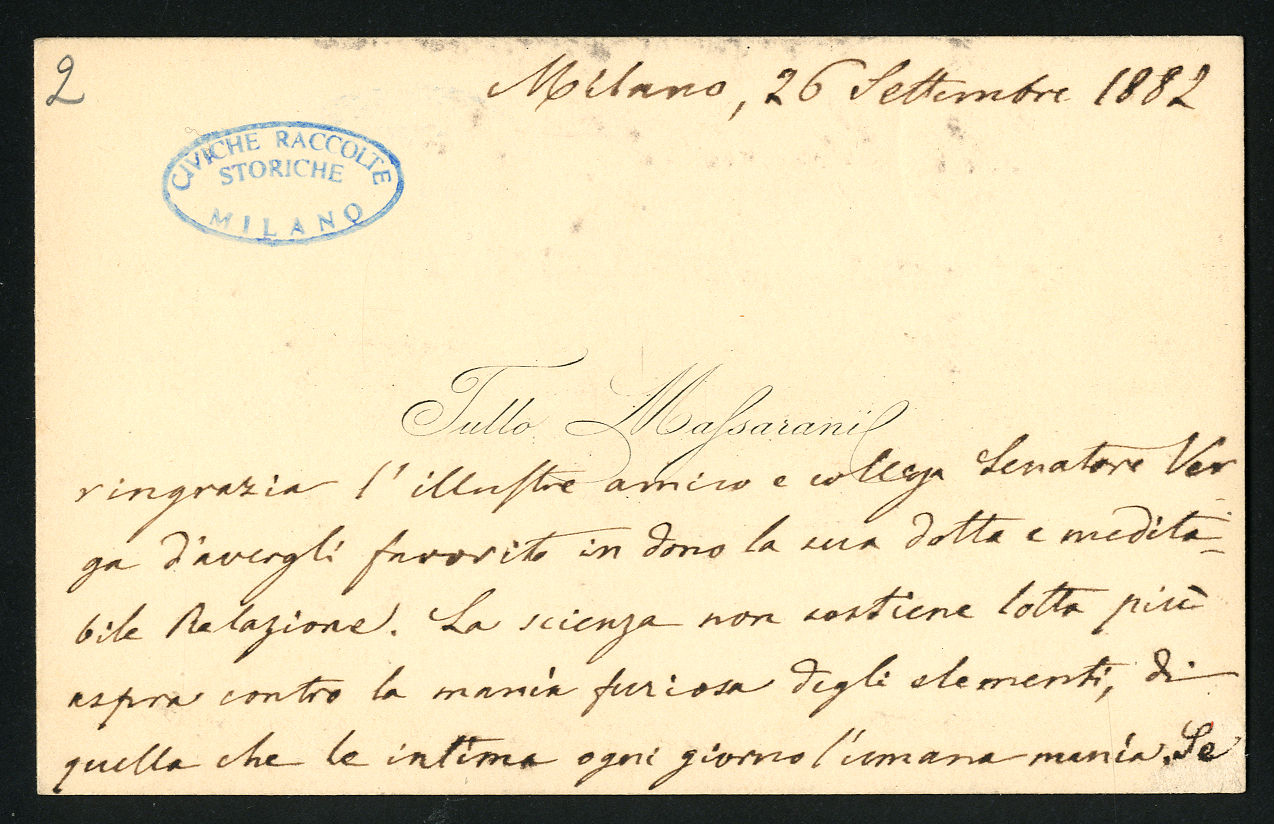 2
Milano, 26 Settembre 1882
CIVICHE RACCOLTE
STORICHE
MILANO
Tullo Massarani
ringrazia l'illustre amico e collega Senatore Ver-
ga d'avergli favorito in dono la sua dotta e medita-
bile Relazione. La scienza non sostiene lotta più
aspra contro la manìa furiosa degli elementi, di
quella che le intima ogni giorno l'umana manìa. Se